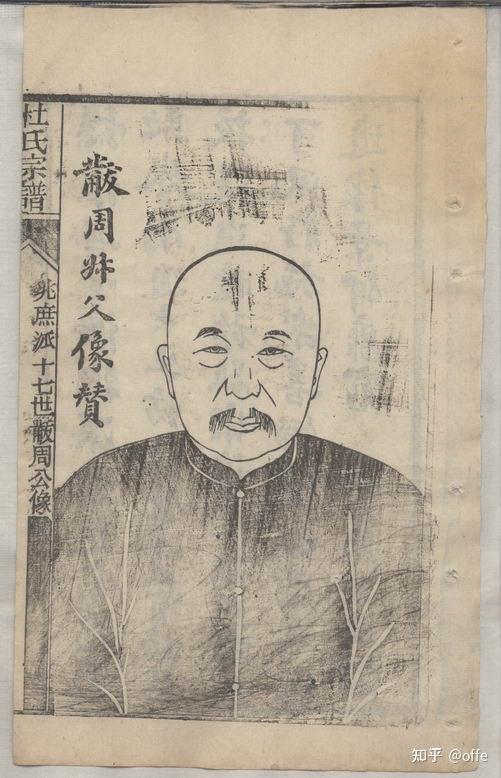 黻周姊父像贊
杜氏宗譜
兆庶派十七世黻周公像
知乎 @offe